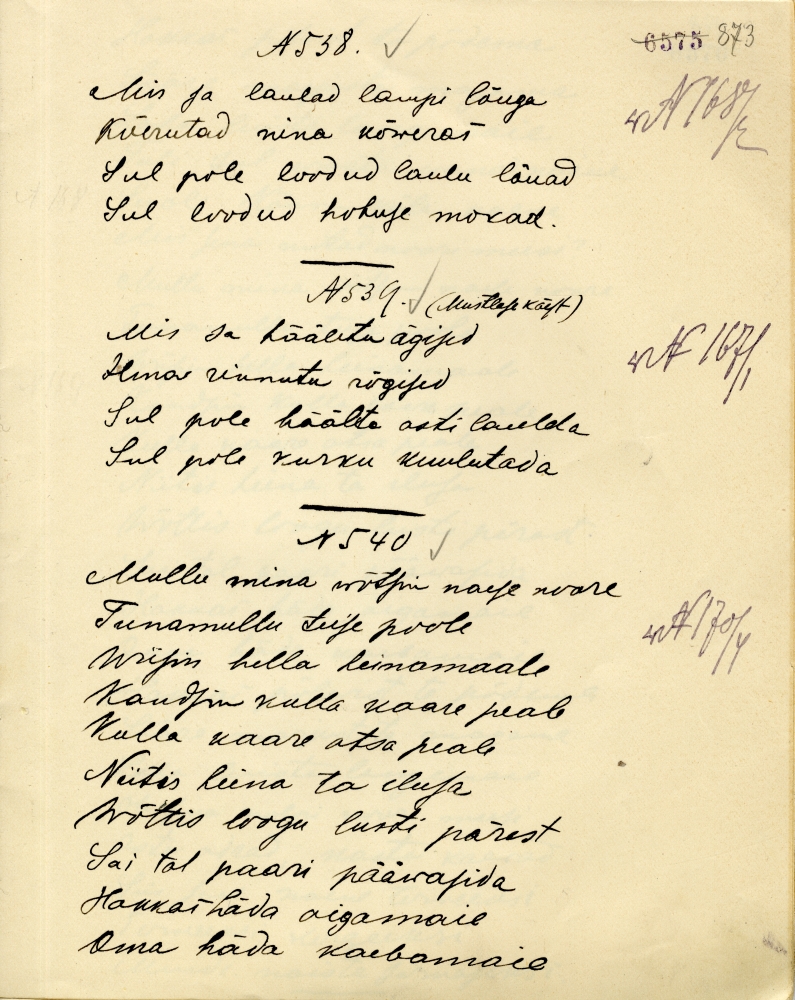 N 538.
6575 873
Mis sa laulad lampi lõuga
Kõerutad nina kõweras
w N 168/2
Sul pole loodud laulu lõuad
Sul loodud hobuse mokad.
N 539. (Mustlase käest)
Mis sa hääleta ägised
w N 167/1
Ilma rinnuta rõgised
Sul pole häälta asti laulda
Sul pole kurku kuulutada
N 540
Mullu mina wõtsin naese noore
Tunamullu teise poole
w N 170/4
Wiisin hella heinamaale
Kandsin kulla kaare peale
Kulla kaare otsa peale
Niitis heina ta ilusa
Wõttis loogu lusti pärest
Sai tal paari pääwasida
Hakkas häda aigamaie
Oma häda kaebamaie